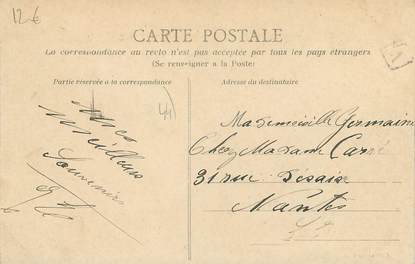 12€
CARTE POSTALE
La correspondance au recto n'est pas acceptée par tous les pays étrangers
(Se renseigner à la Poste)
Partie réservée à la correspondance
Adresse du destinataire
44
Meilleurs
Souvenirs
Mademoiselle Germaine
Chez Madame Carré
31 rue Désaix
Nantes